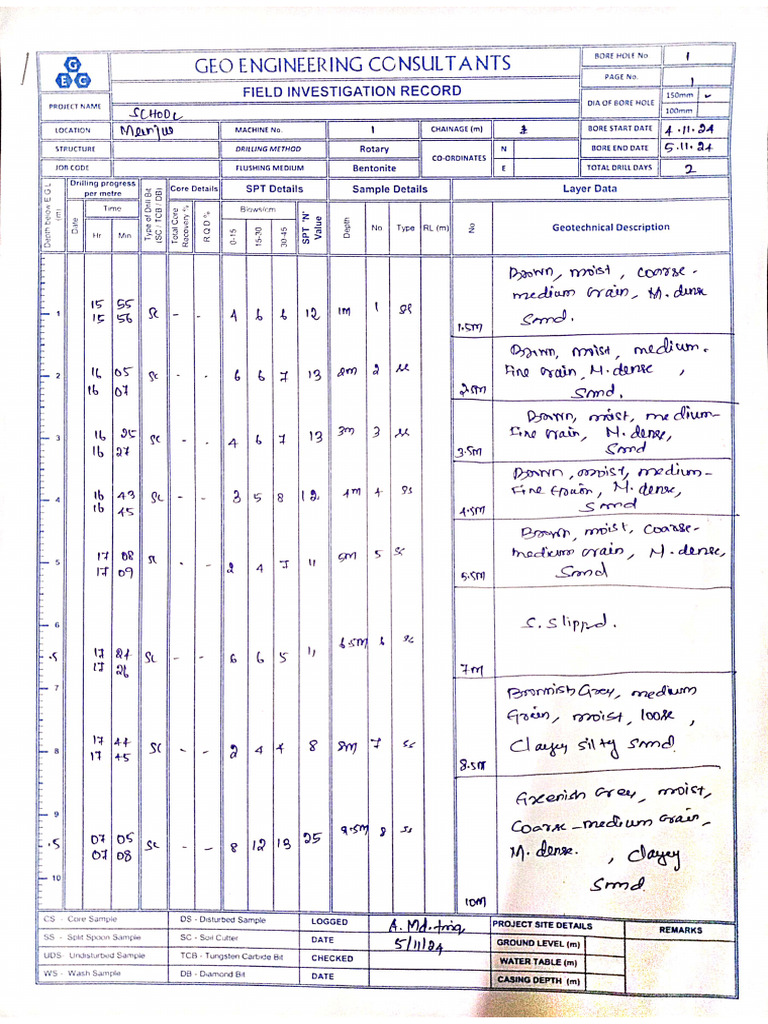 GEO ENGINEERING CONSULTANTS
FIELD INVESTIGATION RECORD
G E C
BORE HOLE No 1
PAGE No. 1
DIA OF BORE HOLE 150mm ✓
100mm
PROJECT NAME SCHOOL
LOCATION MACHINE No. 1 CHAINAGE (m) BORE START DATE 4.11.24
STRUCTURE DRILLING METHOD Rotary CO-ORDINATES N BORE END DATE 5.11.24
JOB CODE FLUSHING MEDIUM Bentonite E TOTAL DRILL DAYS 2
Depth below E G L (m) Drilling progress per metre Type of Drill Bit (SC / TCB / DB) Core Details SPT Details Sample Details Layer Data
Date Time Total Core Recovery % R Q D % Blows/cm SPT 'N' Value Depth No Type RL (m) No Geotechnical Description
Hr Min 0-15 15-30 30-45
Brown, moist, coarse-
medium Grain, M. dense
1 15 55 SC - - 4 6 6 12 1m 1
15 56
1.5m Sand.
Brown, moist, medium-
2 16 05 SC - - 6 6 7 13 2m 2
Fine Grain, M. dense,
16 07
2.5m Sand.
Brown, moist, medium-
3 16 25 SC - - 4 6 7 13 3m 3
Fine Grain, M. dense,
16 27
3.5m Sand
Brown, moist, medium-
4 16 43 SC - - 3 5 8 12 4m 4 SS
Fine Grain, M. dense,
16 45
4.5m Sand
Brown, moist, coarse-
5 17 08 SC 2 4 7 11 5m 5
medium Grain, M. dense,
17 09
5.5m Sand
6
S. Slippd.
.5 17 24 SC - - 6 6 5 11 6.5m 6
17 26
7m
7
Brownish Grey, medium
Grain, moist, loose,
8 17 44 SC - - 2 4 4 8 8m 7 SS
17 45
Clayey silty sand.
8.5m
9
Greenish Grey, moist,
Coarse-medium Grain,
.5 07 05 SC - - 8 12 13 25 9.5m 8 SS
07 08
M. dense. , Clayey
Sand.
10 10m
CS - Core Sample DS - Disturbed Sample LOGGED PROJECT SITE DETAILS REMARKS
SS - Split Spoon Sample SC - Soil Cutter DATE 5/11/24 GROUND LEVEL (m)
UDS - Undisturbed Sample TCB - Tungsten Carbide Bit CHECKED WATER TABLE (m)
WS - Wash Sample DB - Diamond Bit DATE CASING DEPTH (m)